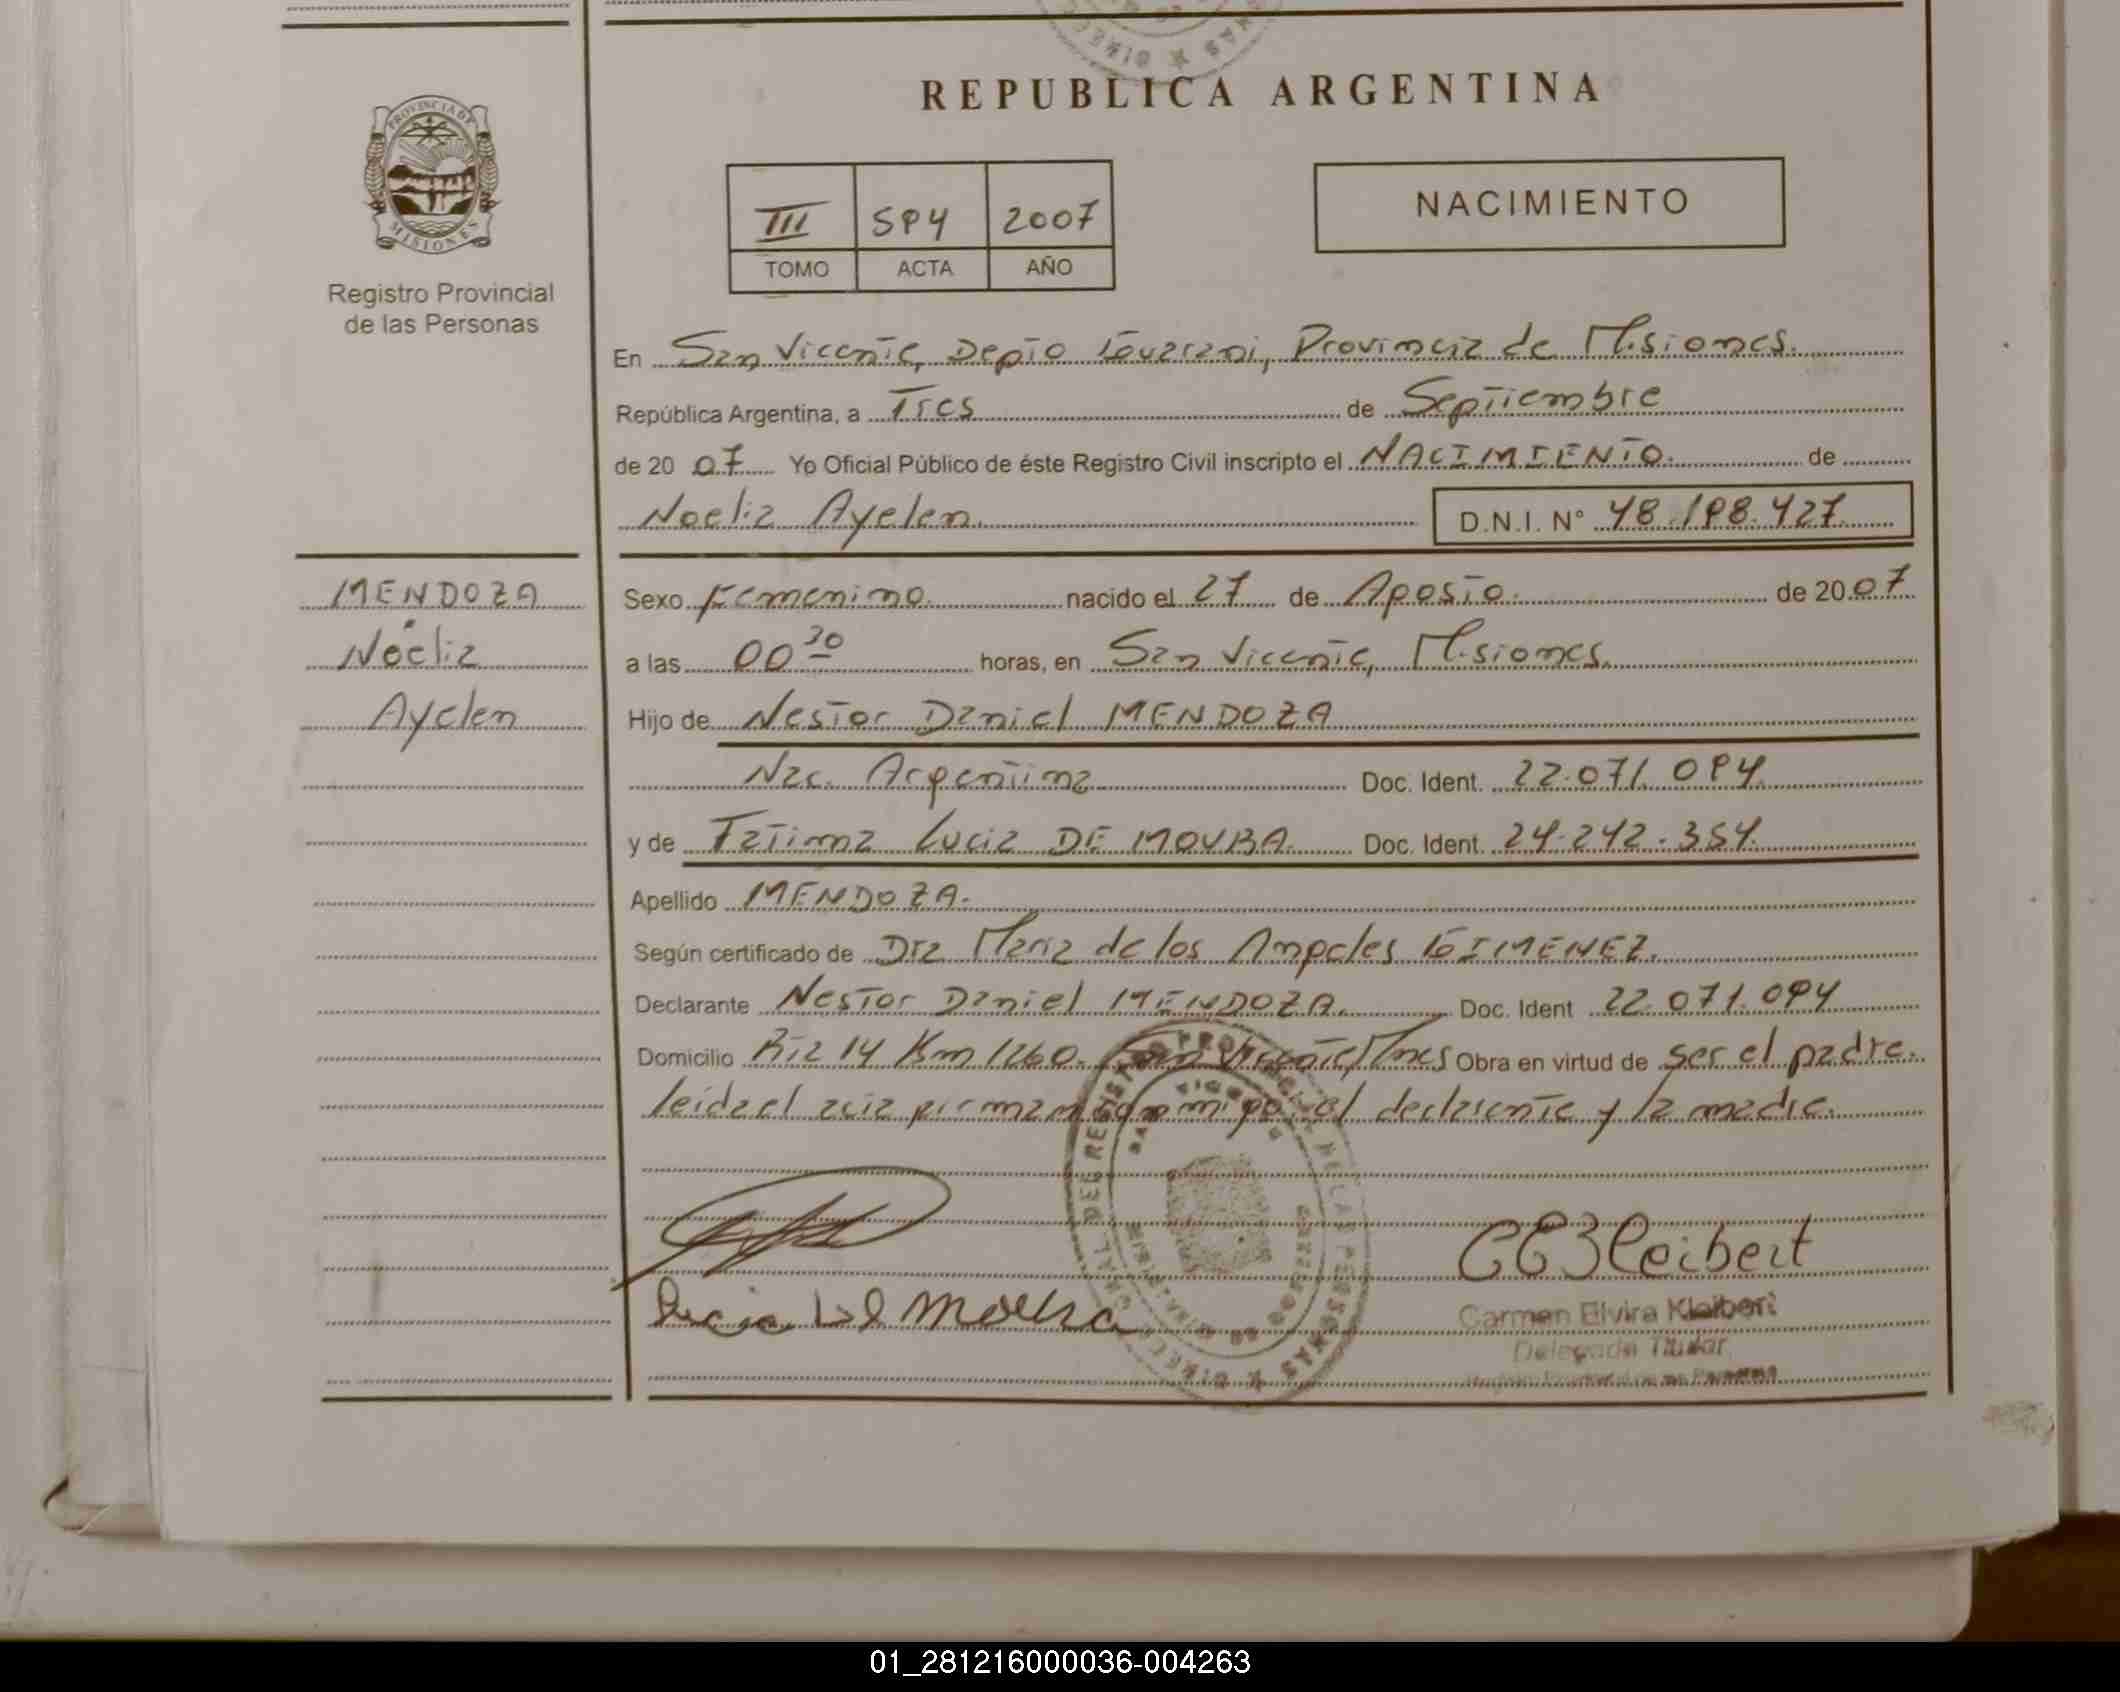 REPUBLICA ARGENTINA
PROVINCIA DE
MISIONES
Registro Provincial
de las Personas
III 594 2007
TOMO ACTA AÑO
NACIMIENTO
En San Vicente, Depto Guarani, Provincia de Misiones.
República Argentina, a Tres de Septiembre
de 20 07 Yo Oficial Público de éste Registro Civil inscripto el NACIMIENTO. de
Noelia Ayelen. D.N.I. N° 48.198.427
MENDOZA
Noelia
Ayelen
Sexo Femenino. nacido el 27 de Agosto. de 20 07
a las 00 30 horas, en San Vicente, Misiones.
Hijo de Nestor Daniel MENDOZA
Nac. Argentina Doc. Ident. 22.071.094.
y de Fatima Lucia DE MOURA. Doc. Ident. 24.242.354.
Apellido MENDOZA.
Según certificado de Dra Maria de los Angeles GIMENEZ.
Declarante Nestor Daniel MENDOZA. Doc. Ident 22.071.094
Domicilio Rta 14 Km 1260. San Vicente, Mnes Obra en virtud de ser el padre.
leida el acta firman con migo, el declarante y la madre.
DIREC. GRAL. DEL REGISTRO PROVINCIAL DE LAS PERSONAS
Lucia de Moura
CEKleibert
Carmen Elvira Kleibert
Delegada Titular
01_281216000036-004263